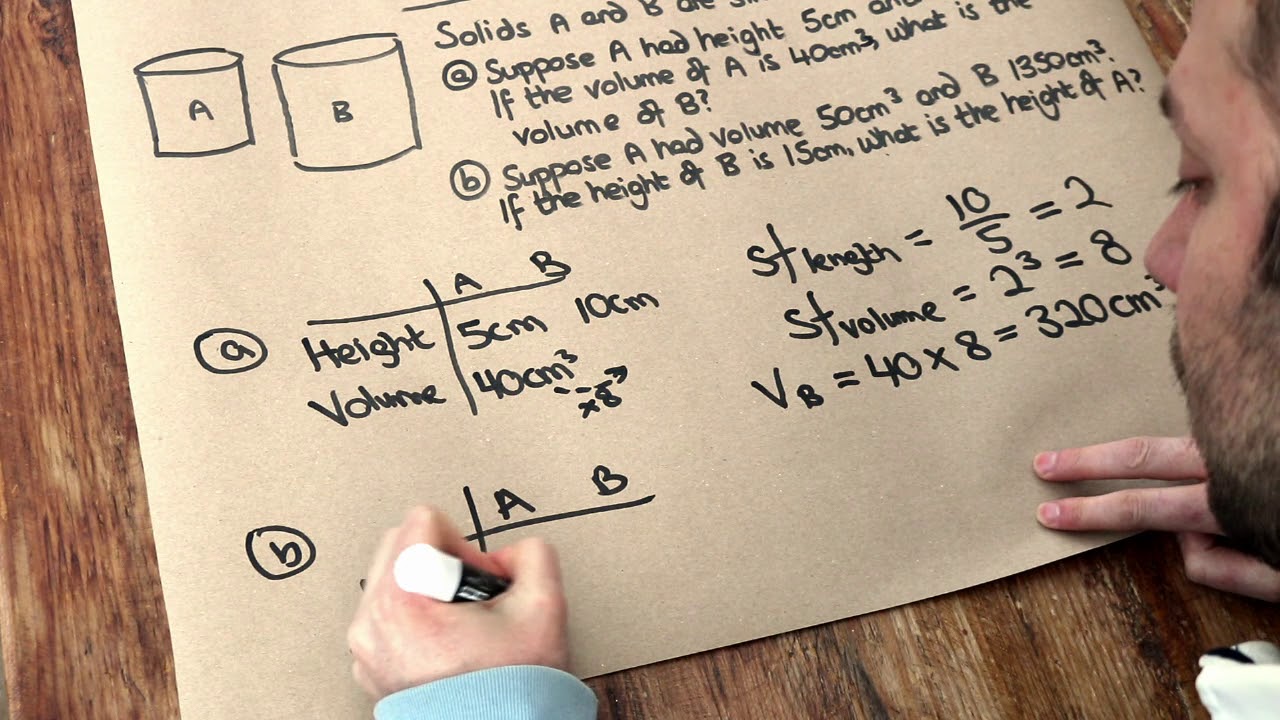 Solids A and B are
ⓐ Suppose A had height 5cm and
If the volume of A is 40cm³, what is the
volume of B?
ⓑ Suppose A had volume 50cm³ and B 1350cm³.
If the height of B is 15cm, what is the height of A?
A
B
ⓐ
A B
Height 5cm 10cm
Volume 40cm³
×8
Sf length = 10/5 = 2
Sf volume = 2³ = 8
V_B = 40 × 8 = 320cm³
ⓑ
A B